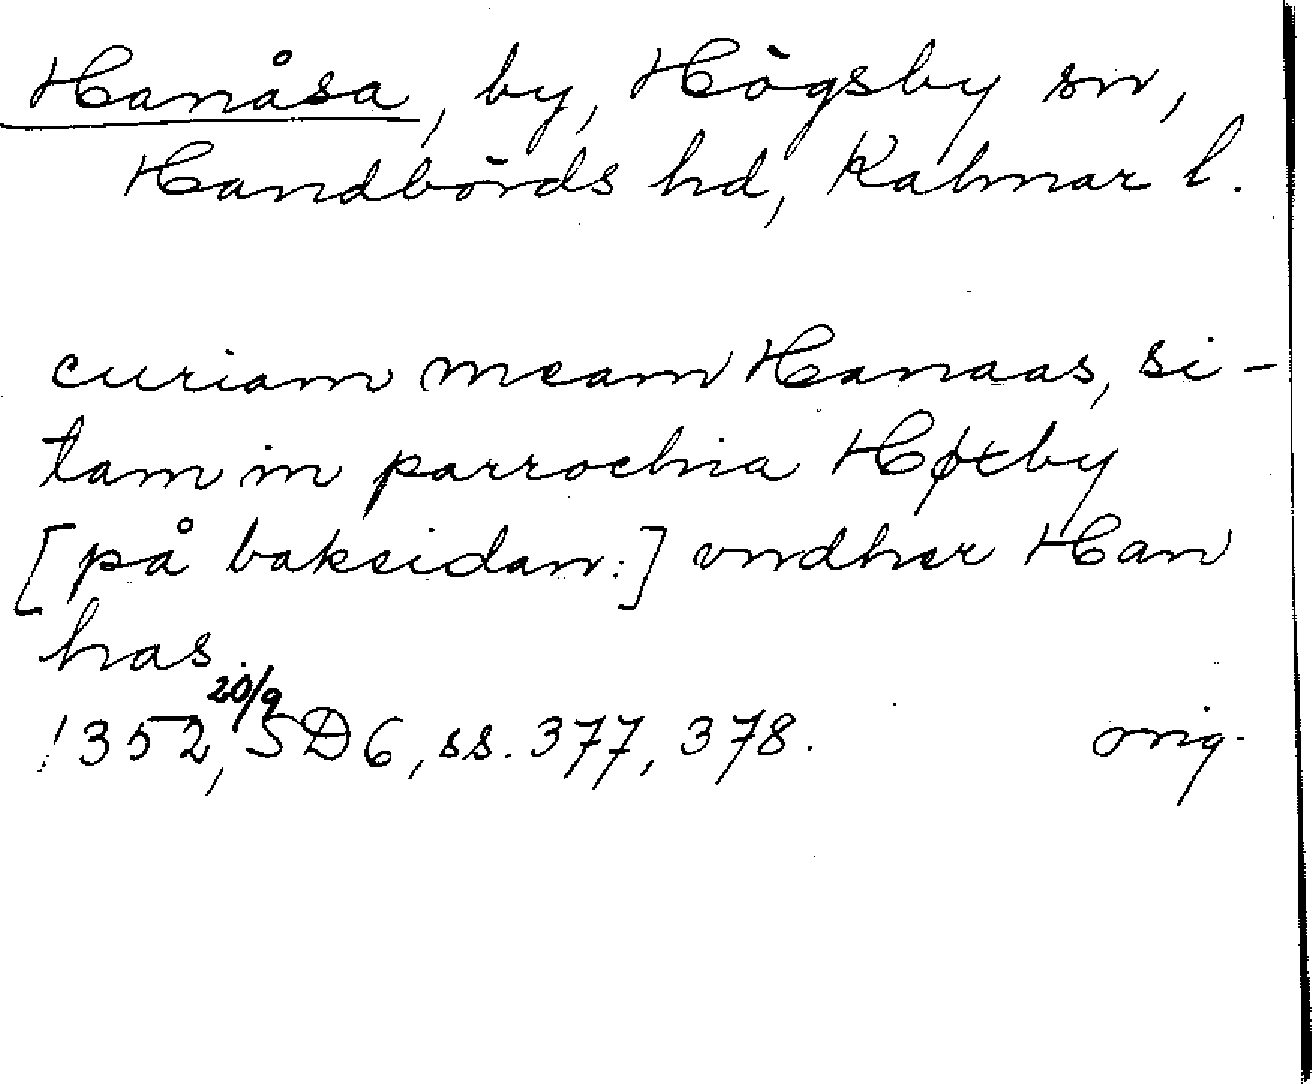 Hanåsa, by, Högsby sn,
Handbörds hd, Kalmar l.
curiam meam Hanaas, si-
tam in parrochia Høxby
[på baksidan:] vndher Han
has.
1352, 20/9 SD6, ss. 377, 378. orig.